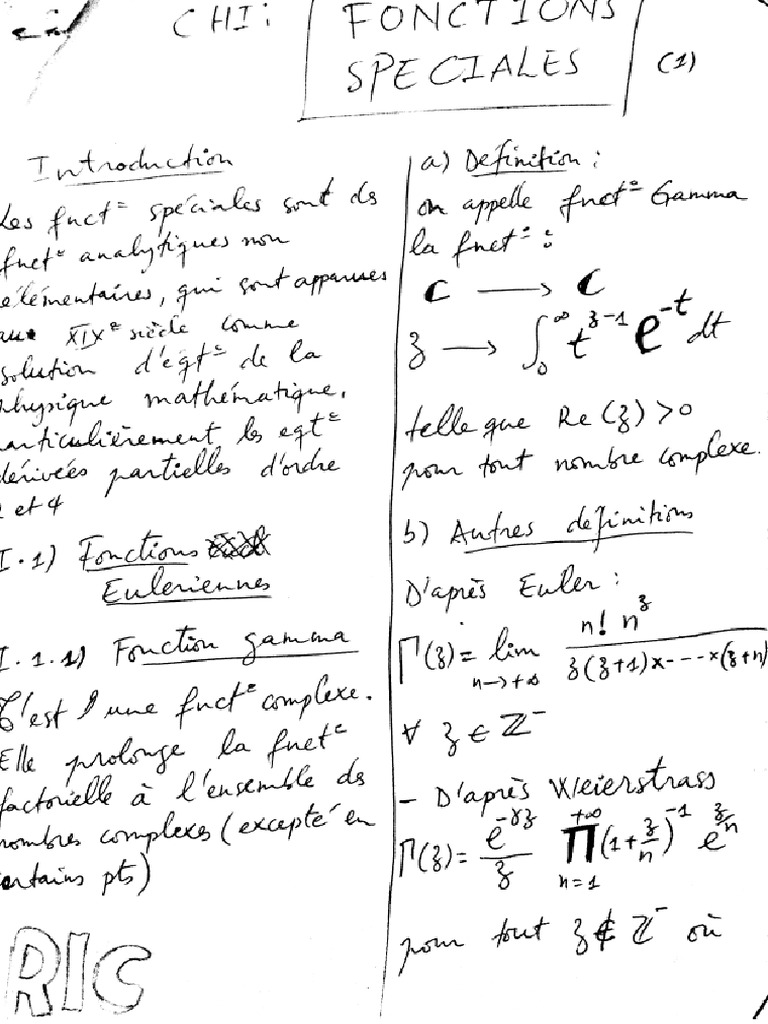 CHI:
FONCTIONS
SPECIALES
(1)
Introduction
Les fnct° spéciales sont ds
fnct° analytiques non
élémentaires, qui sont apparues
au XIX° siècle comme
solution d'eqt° de la
physique mathématique,
particulièrement les eqt°
dérivées partielles d'ordre
2 et 4
I.1) Fonctions
Euleriennes
I.1.1) Fonction gamma
C'est une fnct° complexe.
Elle prolonge la fnct°
factorielle à l'ensemble ds
nombres complexes (excepté en
certains pts)
RIC
a) Definition :
On appelle fnct° Gamma
la fnct° :
C → C
z → ∫₀^∞ t^{z-1} e^{-t} dt
telle que Re(z) > 0
pour tout nombre complexe.
b) Autres definitions
D'après Euler :
Γ(z) = lim_{n→+∞} n! n^z / z(z+1)×----×(z+n)
∀ z ∈ ℤ⁻
- D'après Weierstrass
Γ(z) = e^{-γz}/z ∏_{n=1}^{+∞} (1+z/n)^{-1} e^{z/n}
pour tout z ∉ ℤ⁻ où